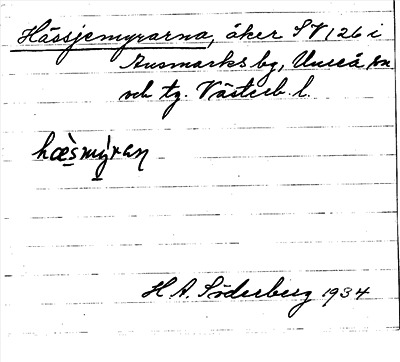 Hässjemyrarna, åker SV 126 i
Ansmarks by, Umeå sn
och tg. Västerb. l.
hæ̀smýran
H A. Söderberg 1934